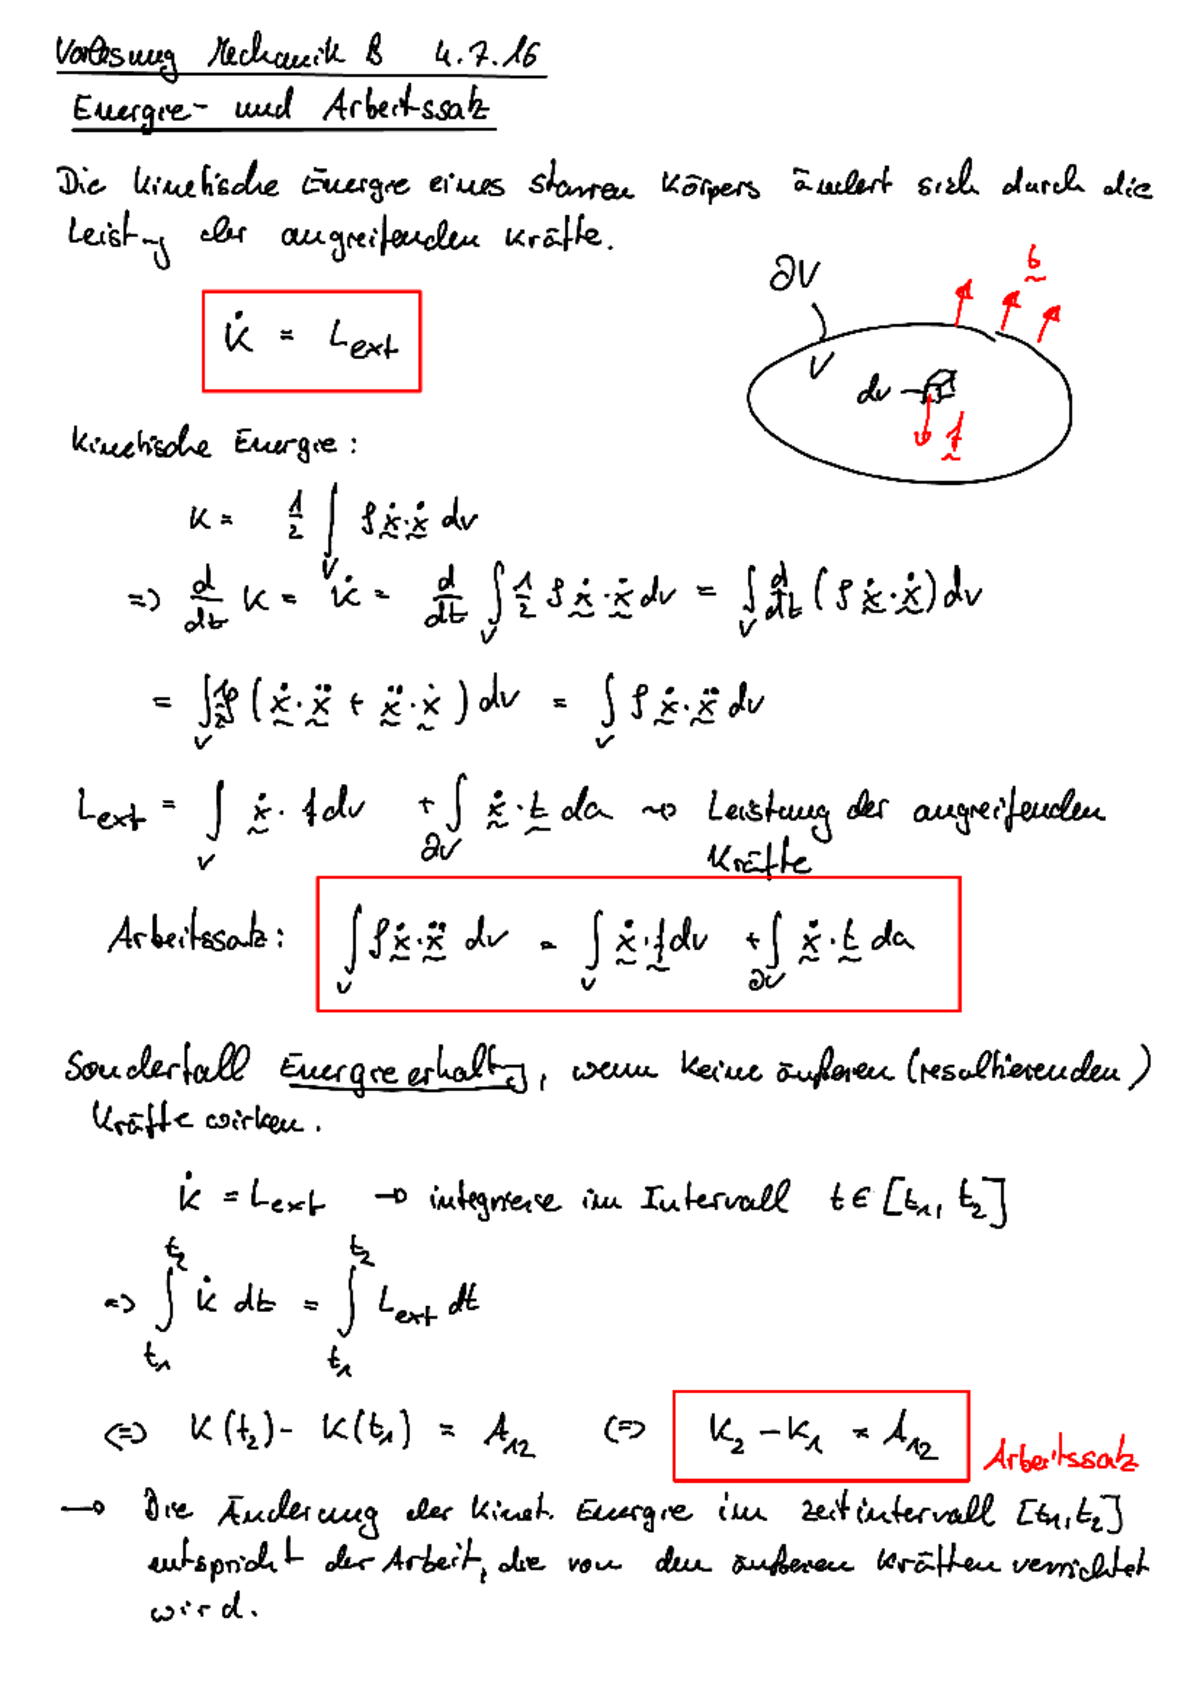 Vorlesung Mechanik B 4.7.16
Energie- und Arbeitssatz
Die kinetische Energie eines starren Körpers ändert sich durch die
Leistung der angreifenden Kräfte.
∂V
V
dv
f
K̇ = L_ext
Kinetische Energie:
K = 1/2 ∫_V ρ ẋ·ẋ dv
=> d/dt K = K̇ = d/dt ∫_V 1/2 ρ ẋ·ẋ dv = ∫_V d/dt (ρ ẋ·ẋ) dv
= ∫_V 1/2 ρ (ẋ·ẍ + ẍ·ẋ) dv = ∫_V ρ ẋ·ẍ dv
L_ext = ∫_V ẋ·f dv + ∫_∂V ẋ·t da ~> Leistung der angreifenden
Kräfte
Arbeitssatz: ∫_V ρ ẋ·ẍ dv = ∫_V ẋ·f dv + ∫_∂V ẋ·t da
Sonderfall Energieerhaltung, wenn keine äußeren (resultierenden)
Kräfte wirken.
K̇ = L_ext → integriere im Intervall t ∈ [t₁, t₂]
=> ∫_t₁^t₂ K̇ dt = ∫_t₁^t₂ L_ext dt
<=> K(t₂) - K(t₁) = A₁₂ <=> K₂ - K₁ = A₁₂ Arbeitssatz
→ Die Änderung der kinet. Energie im Zeitintervall [t₁, t₂]
entspricht der Arbeit, die von den äußeren Kräften verrichtet
wird.